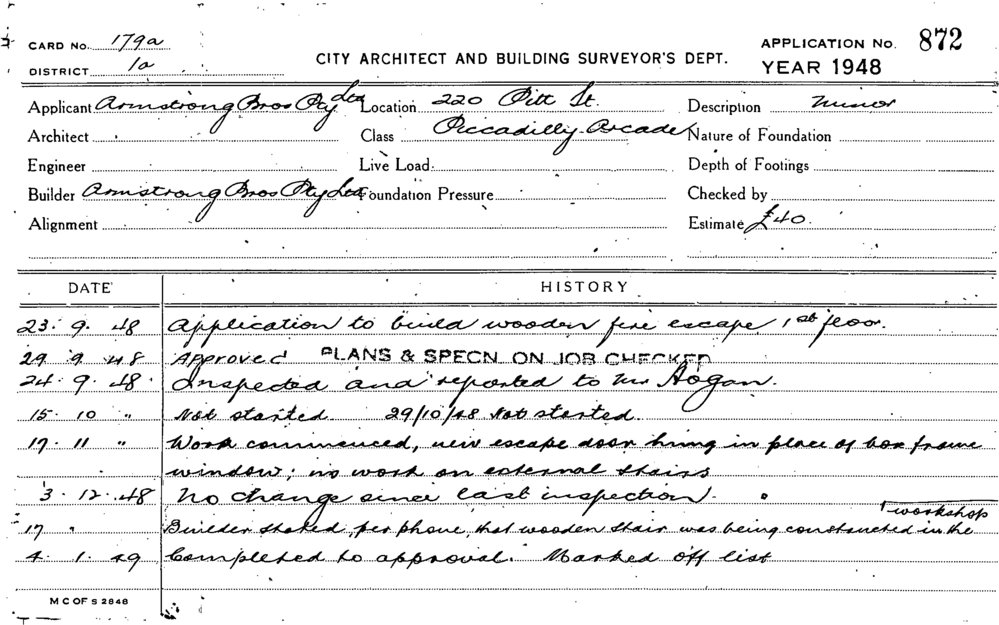 CARD No. 179a
DISTRICT 1a
CITY ARCHITECT AND BUILDING SURVEYOR'S DEPT.
APPLICATION No. 872
YEAR 1948
Applicant Armstrong Bros Pty Ltd Location 220 Pitt St. Description Minor
Architect Class Piccadilly Arcade Nature of Foundation
Engineer Live Load Depth of Footings
Builder Armstrong Bros Pty Ltd Foundation Pressure Checked by
Alignment Estimate £40.
DATE HISTORY
23. 9. 48 Application to build wooden fire escape 1st floor.
29 9 48 Approved PLANS & SPECN. ON JOB CHECKED
24. 9. 48. Inspected and reported to Mr Hogan.
15. 10 " Not started 29/10/48 Not started.
17. 11 " Work commenced, new escape door hung in place of box frame
window; no work on external stairs
3. 12. 48 No change since last inspection.
17 " Builder stated, per phone, that wooden stair was being constructed in the workshop
4. 1. 49 Completed to approval. Marked off list
M C OF S 2848